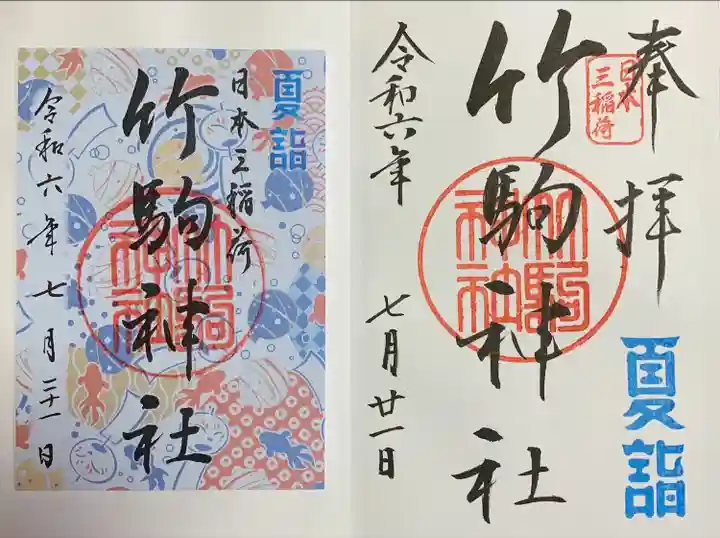 奉拝
日本
三稲荷
竹駒神社
令和六年
七月廿一日
夏詣
竹駒神社
夏詣
日本三稲荷
竹駒神社
令和六年七月二十一日
竹駒神社